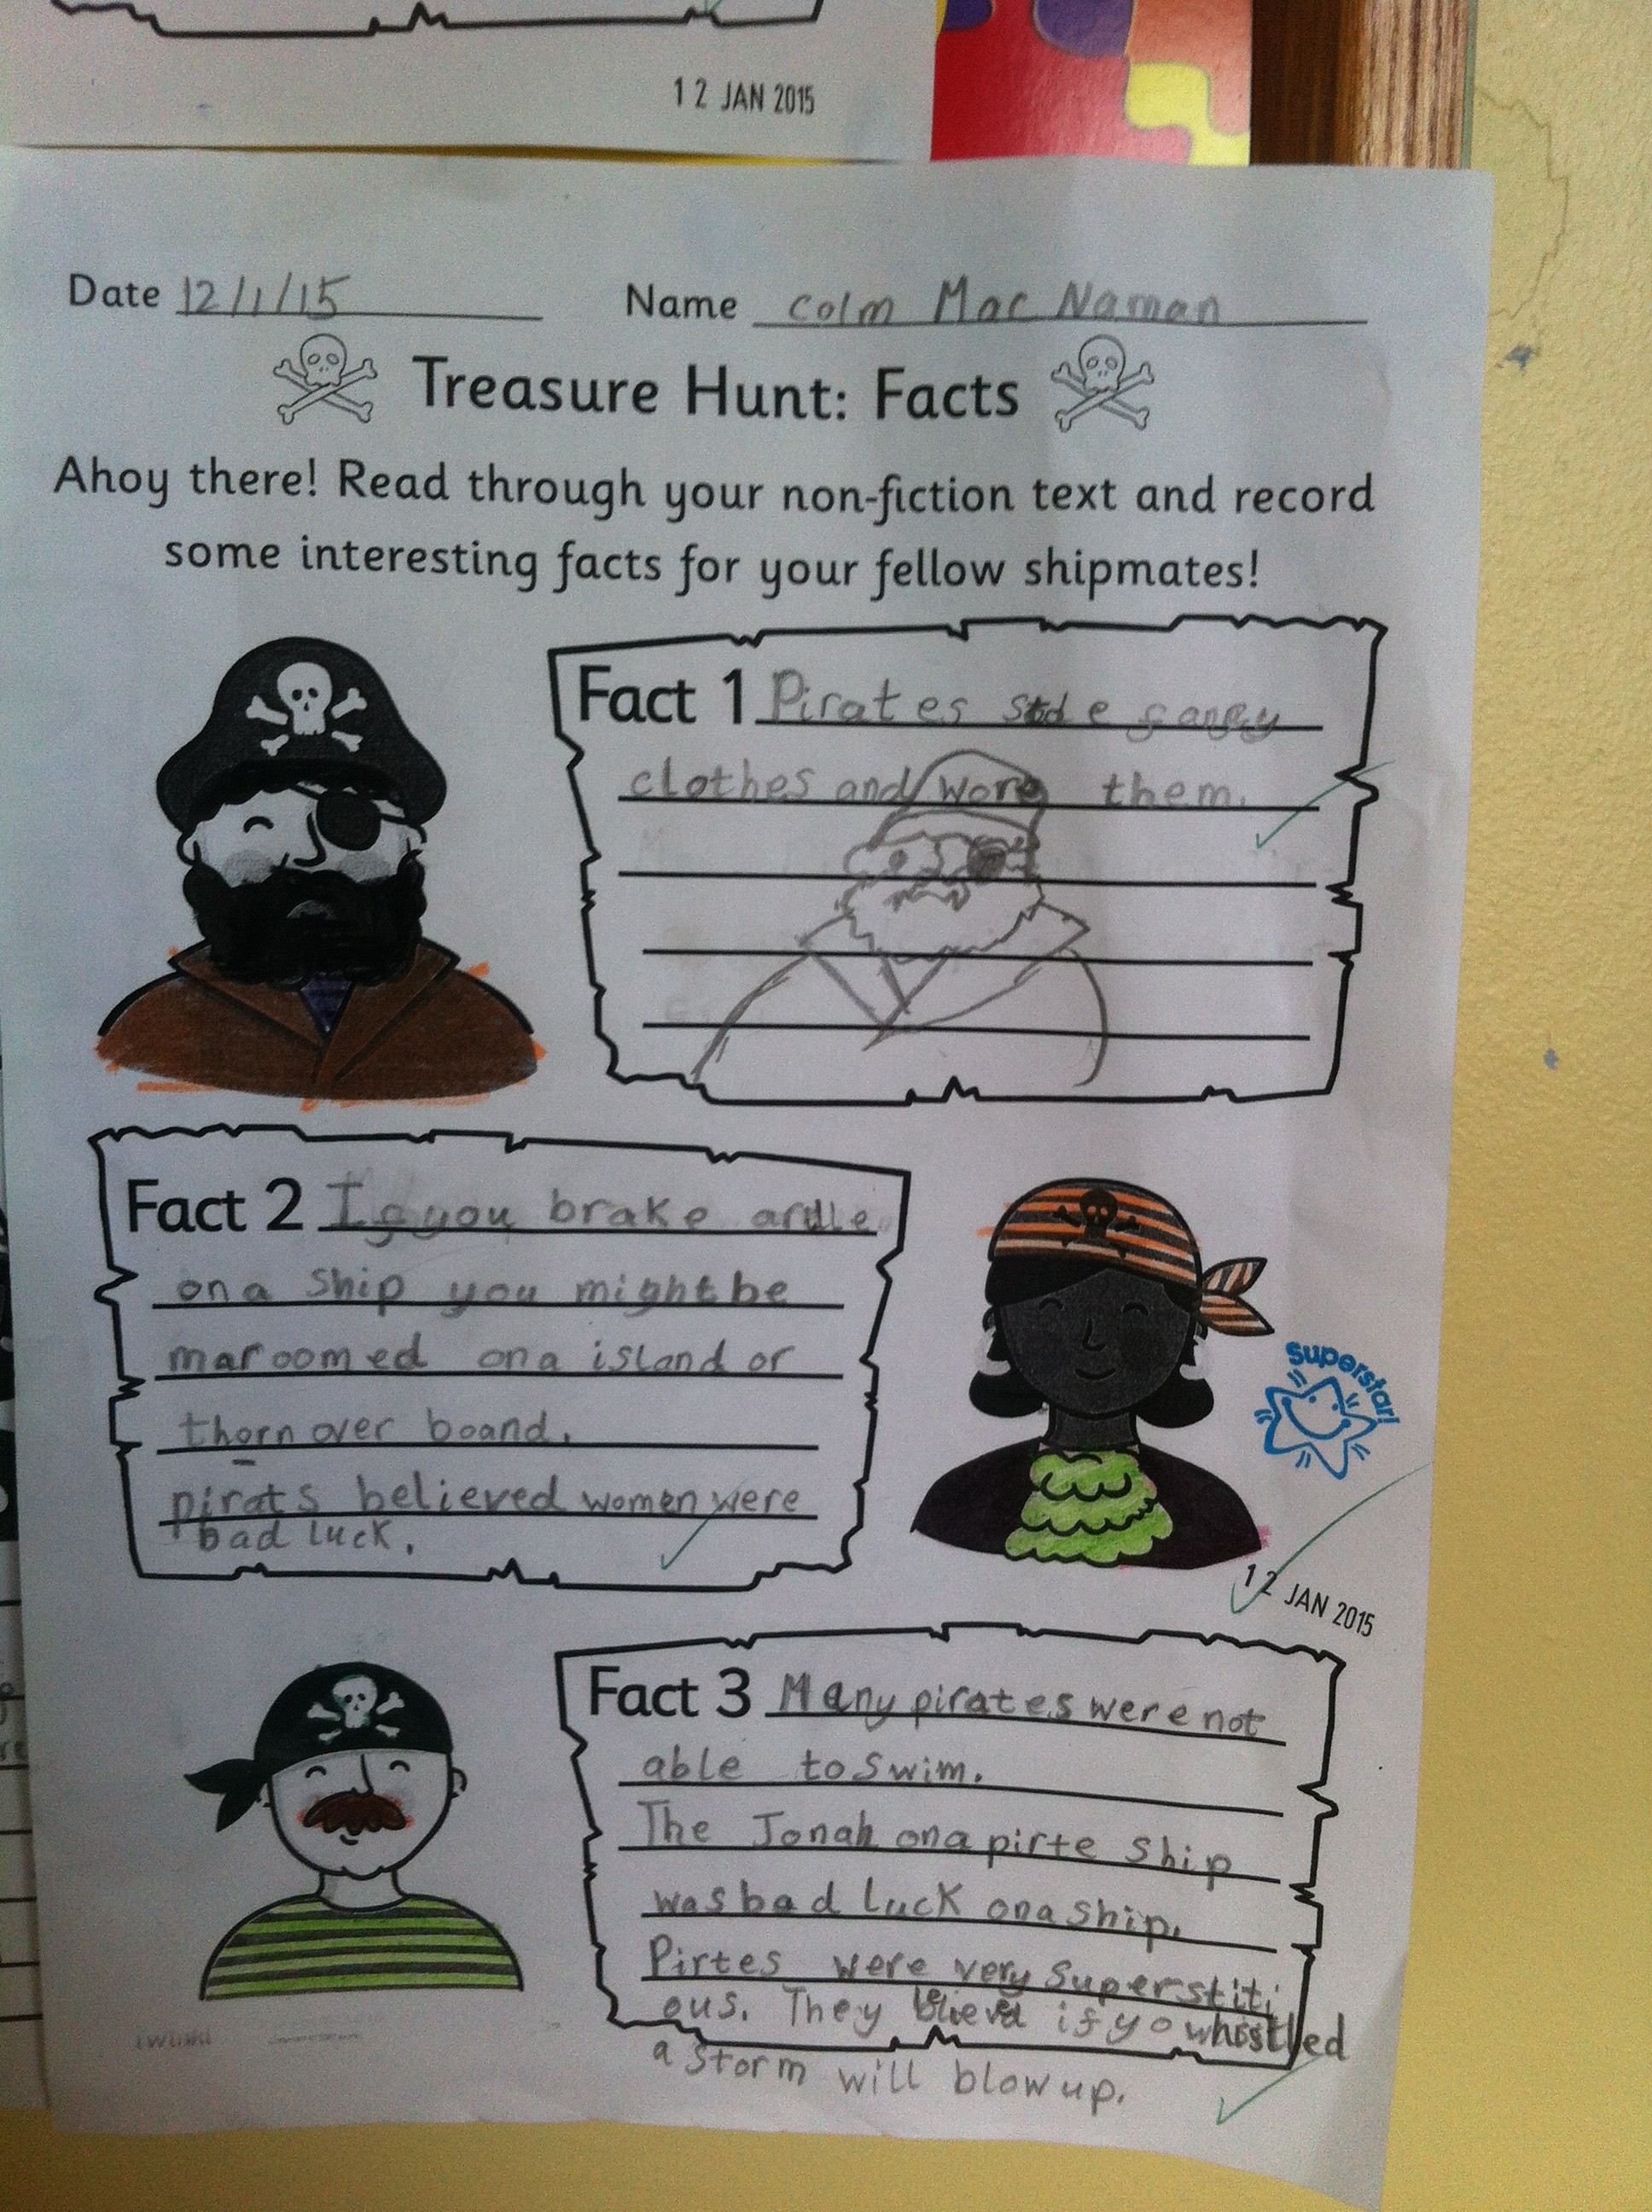 12 JAN 2015
Date 12/1/15 Name colm Mac Naman
Treasure Hunt: Facts
Ahoy there! Read through your non-fiction text and record
some interesting facts for your fellow shipmates!
Fact 1 Pirates stole
clothes and wore them.
Fact 2 If you brake
on a ship you might be
maroomed on a island or
thorn over boand.
pirats believed women were
bad luck.
superstar!
12 JAN 2015
Fact 3 Many pirates were not
able to swim.
The Jonah on a pirte ship
was bad luck on a ship.
Pirtes were very superstiti
ous. They if yo whistled
a storm will blow up.
twinkl